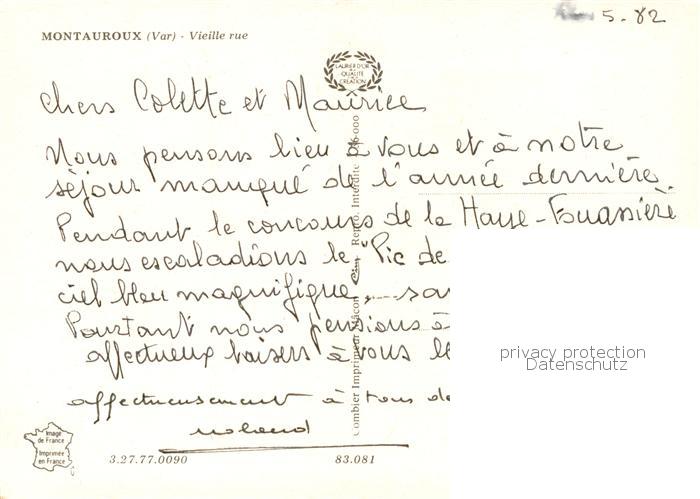 5.82
MONTAUROUX (Var) - Vieille rue
LAURIER D'OR
DE LA
QUALITÉ
CRÉATION
chers Colette et Maurice
Nous pensons bien à vous et à notre
séjour manqué de l'année dernière
Pendant le concours de la Haye-Fouassière
nous escaladions le "Pic de
ciel bleu magnifique,
Pourtant nous pensions à
affectueux baisers à vous
affectueusement à tous
Combier Imprimeur Mâcon Repro. Interdite
privacy protection
Datenschutz
Image
de France
Imprimée
en France
3.27.77.0090
83.081